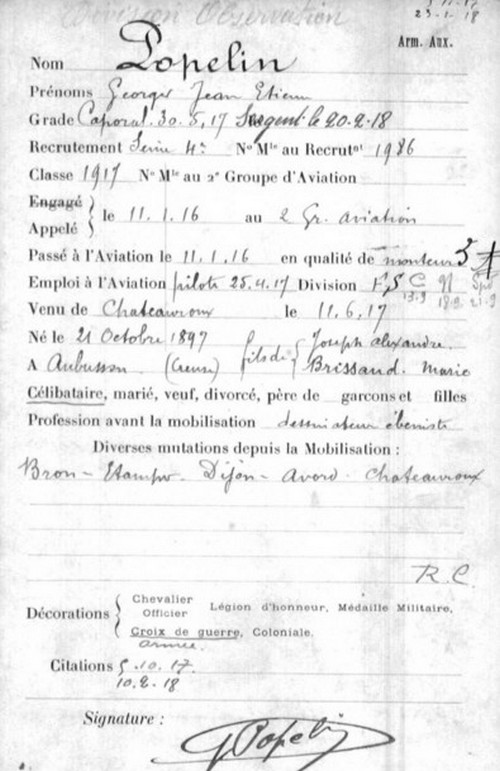 Division Observation
23.1.18
Arm. Aux.
Nom Popelin
Prénoms Georges Jean Etienne
Grade Caporal. 30.5.17 Sergent le 20-2-18
Recrutement Seine 4e No Mle au Recrutnt 1986
Classe 1917 No Mle au 2e Groupe d'Aviation
Engagé
Appelé } le 11.1.16 au 2 Gr. aviation
Passé à l'Aviation le 11.1.16 en qualité de monteur
Emploi à l'Aviation pilote 25.4.17 Division
13.9 18.9 21.9
Venu de Chateauroux le 11.6.17
Né le 21 Octobre 1897 fils de { Joseph Alexandre.
A Aubusson (Creuse) Brissaud. Marie
Célibataire, marié, veuf, divorcé, père de garçons et filles
Profession avant la mobilisation dessinateur ébéniste
Diverses mutations depuis la Mobilisation :
Bron - Etampes - Dijon - Avord - Chateauroux
R.C.
Décorations { Chevalier
Officier Légion d'honneur, Médaille Militaire,
Croix de guerre, Coloniale.
Armée.
Citations 5.10.17.
10.2.18
Signature :
G Popelin